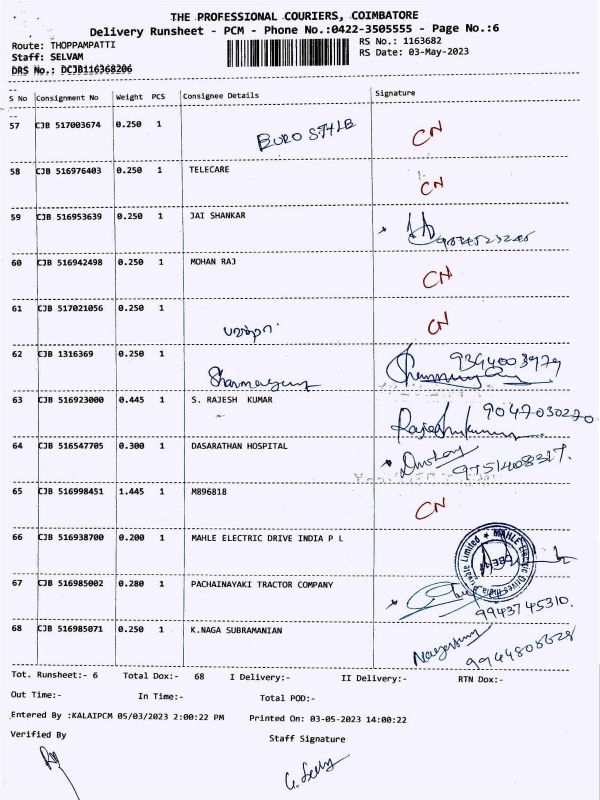 THE PROFESSIONAL COURIERS, COIMBATORE
Delivery Runsheet - PCM - Phone No.:0422-3505555 - Page No.:6
Route: THOPPAMPATTI
RS No.: 1163682
Staff: SELVAM
RS Date: 03-May-2023
DRS No.: DCJB116368206
S No Consignment No Weight PCS Consignee Details Signature
57 CJB 517003674 0.250 1 BURO STYLE CN
58 CJB 516976403 0.250 1 TELECARE CN
59 CJB 516953639 0.250 1 JAI SHANKAR
60 CJB 516942498 0.250 1 MOHAN RAJ CN
61 CJB 517021056 0.250 1 CN
62 CJB 1316369 0.250 1 9344003979
63 CJB 516923000 0.445 1 S. RAJESH KUMAR 9047030220
Rajeshkumar
64 CJB 516547705 0.300 1 DASARATHAN HOSPITAL
9751408317.
65 CJB 516998451 1.445 1 M896818 CN
66 CJB 516938700 0.200 1 MAHLE ELECTRIC DRIVE INDIA P L
67 CJB 516985002 0.280 1 PACHAINAYAKI TRACTOR COMPANY
9943745310.
68 CJB 516985071 0.250 1 K.NAGA SUBRAMANIAN
Tot. Runsheet:- 6 Total Dox:- 68 I Delivery:- II Delivery:- RTN Dox:-
Out Time:- In Time:- Total POD:-
Entered By :KALAIPCM 05/03/2023 2:00:22 PM Printed On: 03-05-2023 14:00:22
Verified By Staff Signature